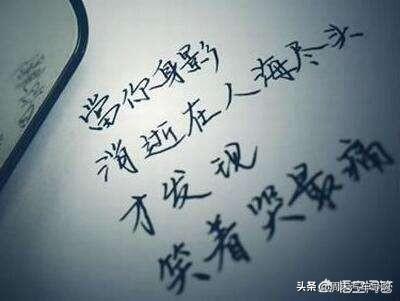 當你身影
消逝在人海尽头
才发现
笑着哭最痛
头条
悟空问答